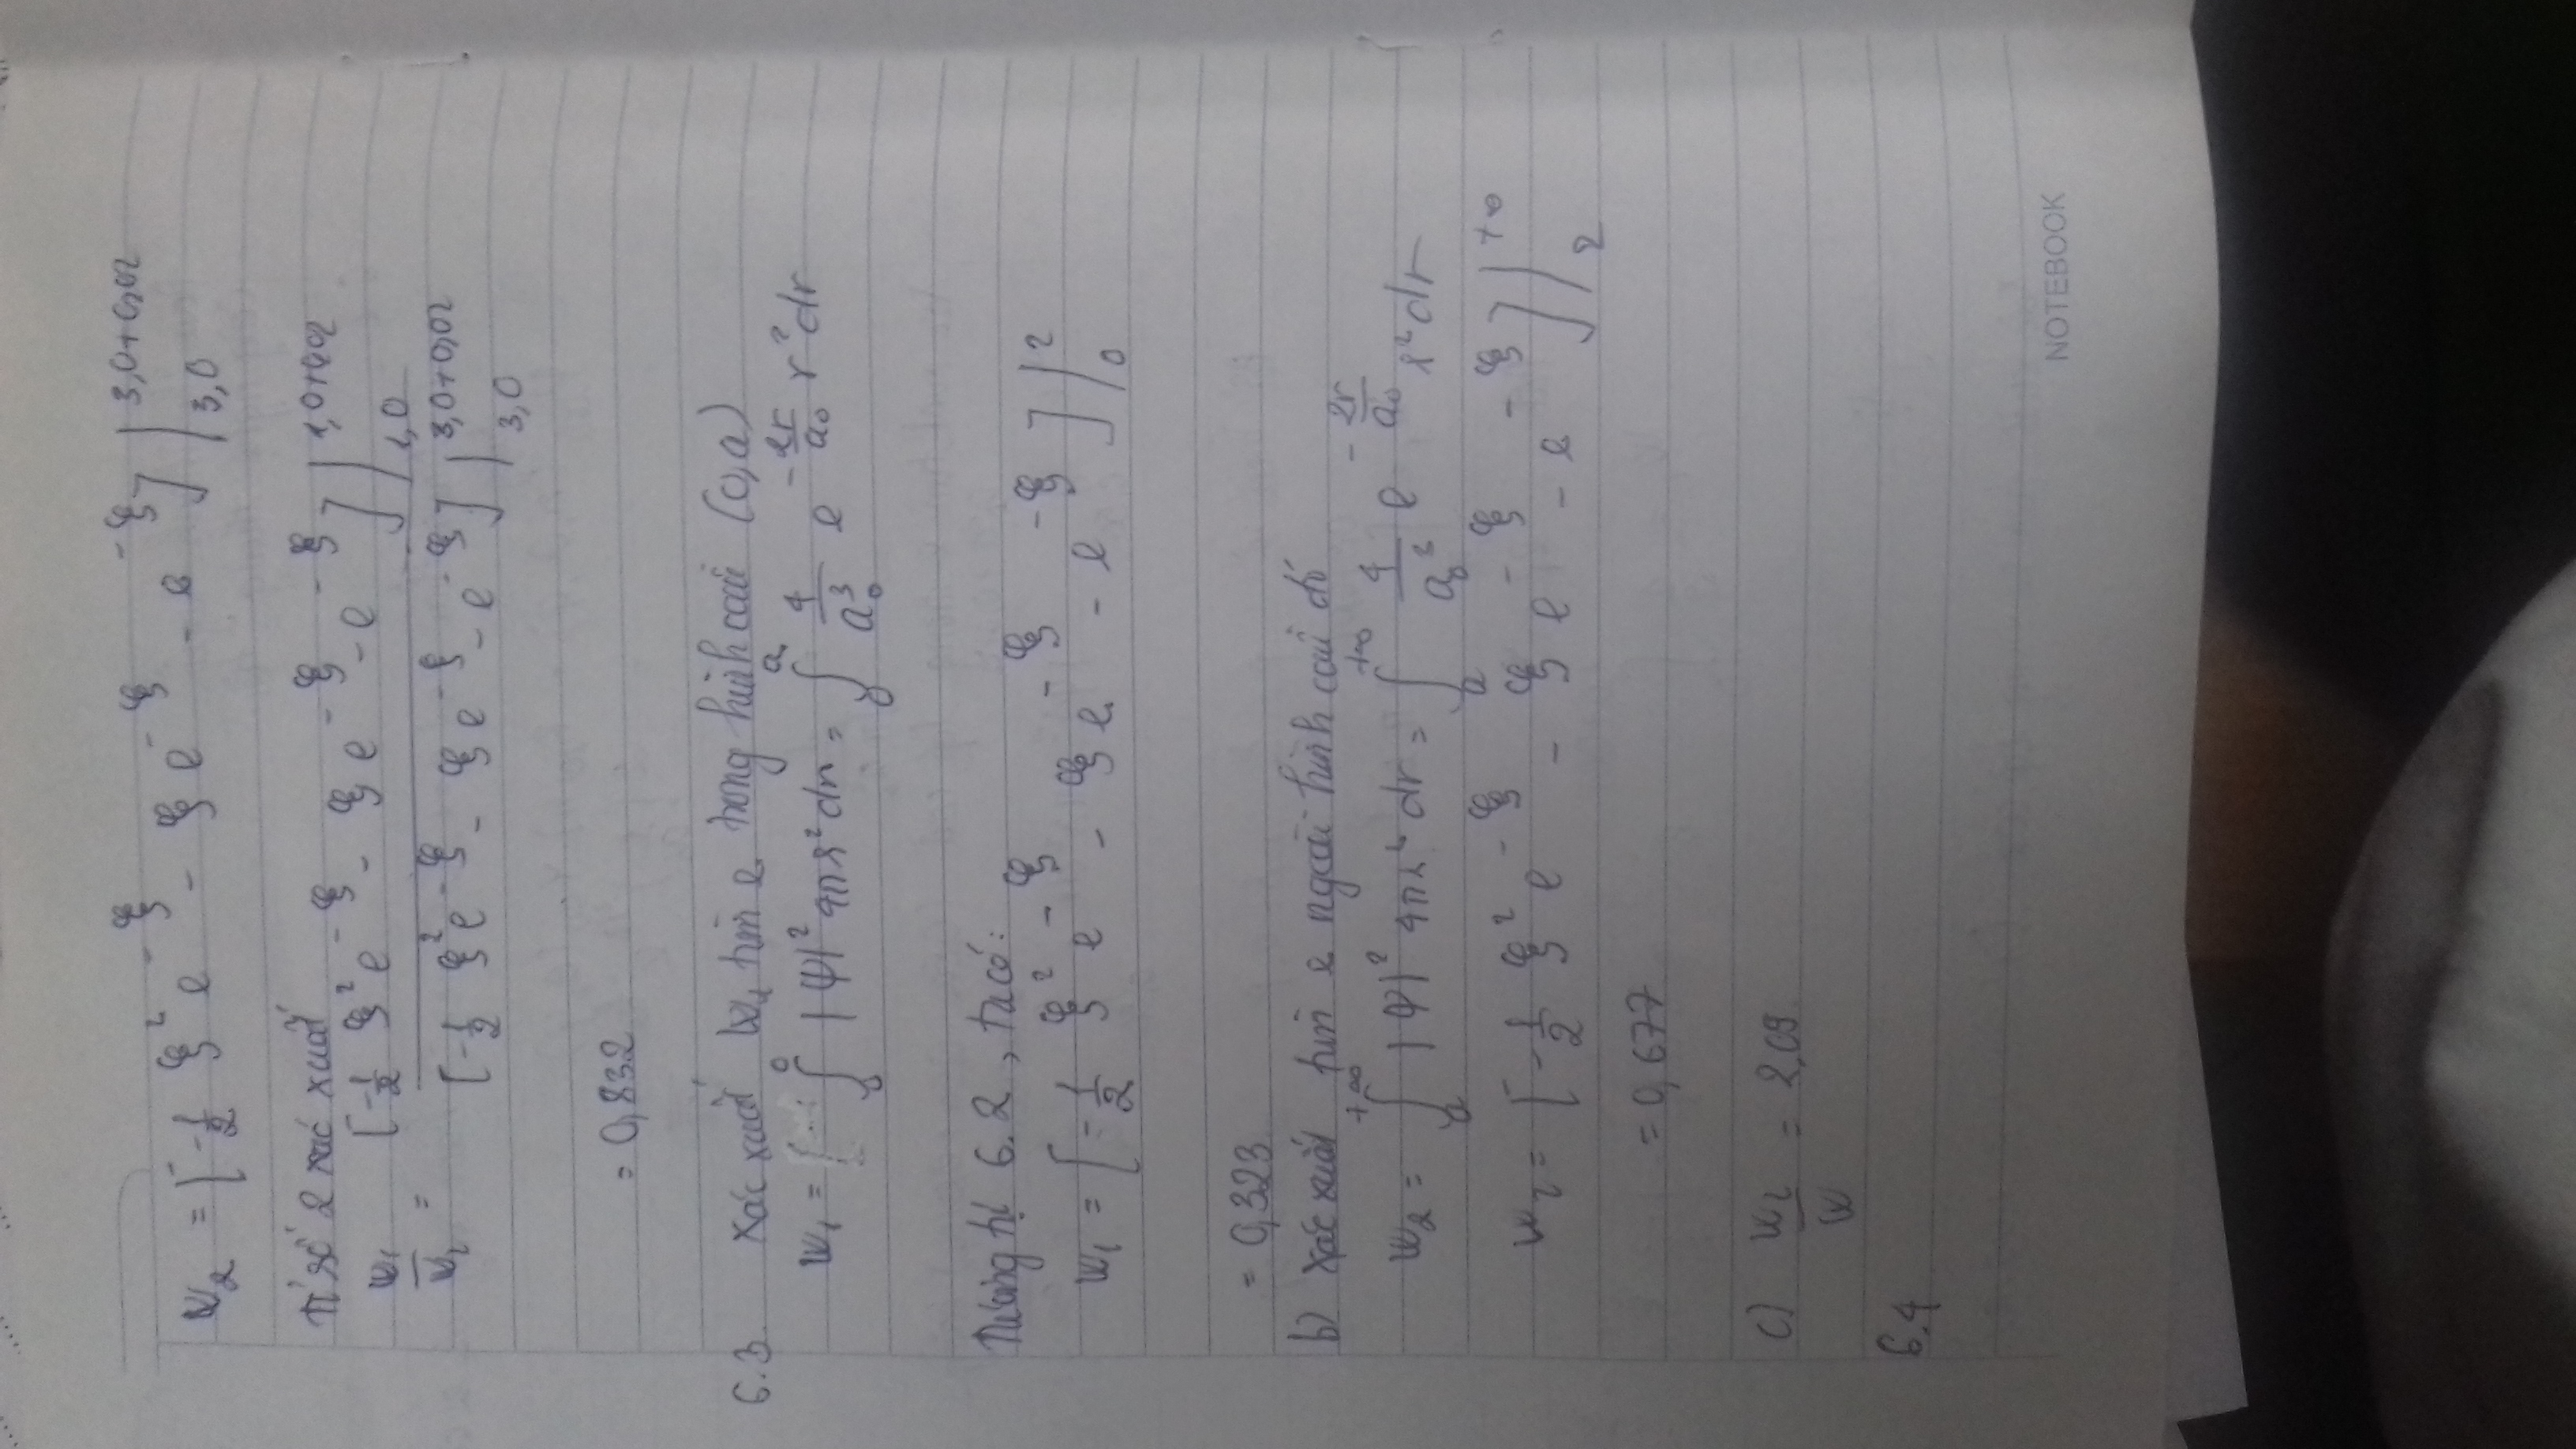 W₂ = [-1/2 ξ² e^-ξ - ξ e^-ξ - e^-ξ] |_3,0^3,0+0,02
Tỉ số 2 xác xuất
W₁/W₂ = [-1/2 ξ² e^-ξ - ξ e^-ξ - e^-ξ] |_1,0^1,0+0,02 / [-1/2 ξ² e^-ξ - ξ e^-ξ - e^-ξ] |_3,0^3,0+0,02
= 0,832
6.3 Xác xuất W₁ tìm e trong hình cầu (0,a)
W₁ = ∫ |Ψ|² 4πr² dr = ∫ 4/a₀³ e^-2r/a₀ r² dr
Tương tự 6.2, ta có:
W₁ = [-1/2 ξ² e^-ξ - ξ e^-ξ - e^-ξ] |_0^2
= 0,323
b) Xác xuất tìm e ngoài hình cầu đó
W₂ = ∫^+∞ |Ψ|² 4πr² dr = ∫_a^+∞ 4/a₀³ e^-2r/a₀ r² dr
W₂ = [-1/2 ξ² e^-ξ - ξ e^-ξ - e^-ξ] |_2^+∞
= 0,677
c) W₂/W = 2,09
6.4
NOTEBOOK